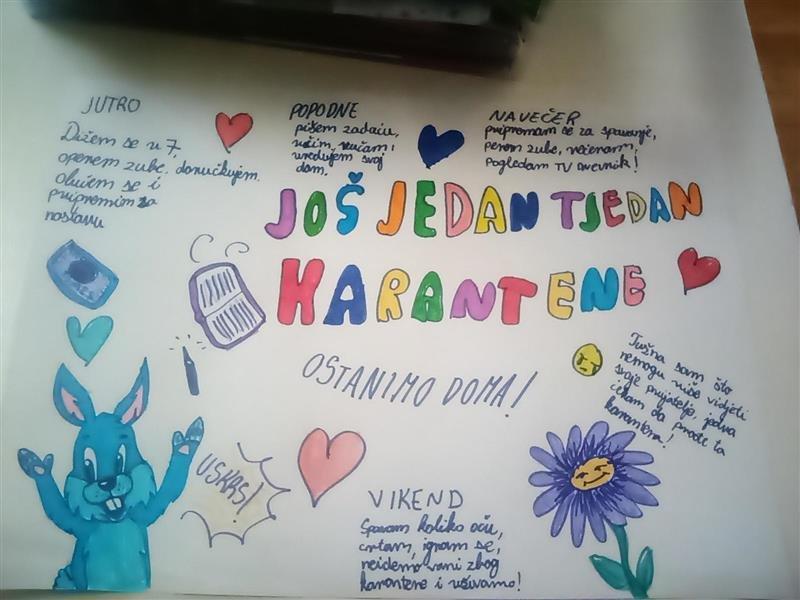 JUTRO
Dižem se u 7,
operem zube, doručkujem.
Obućem se i
pripremim za
nastavu
POPODNE
pišem zadaću,
učim, ručam i
uređujem svoj
dom.
NAVEČER
pripremam se za spavanje,
perem zube, večeram,
Pogledam TV Dnevnik!
JOŠ JEDAN TJEDAN
KARANTENE
OSTANIMO DOMA!
Tužna sam što
nemogu više vidjeti
svoje prijatelje, jedva
čekam da prođe ta
karantena!
USKRS!
VIKEND
Spavam koliko oću,
crtam, igram se,
neidemo vani zbog
karantene i uživamo!